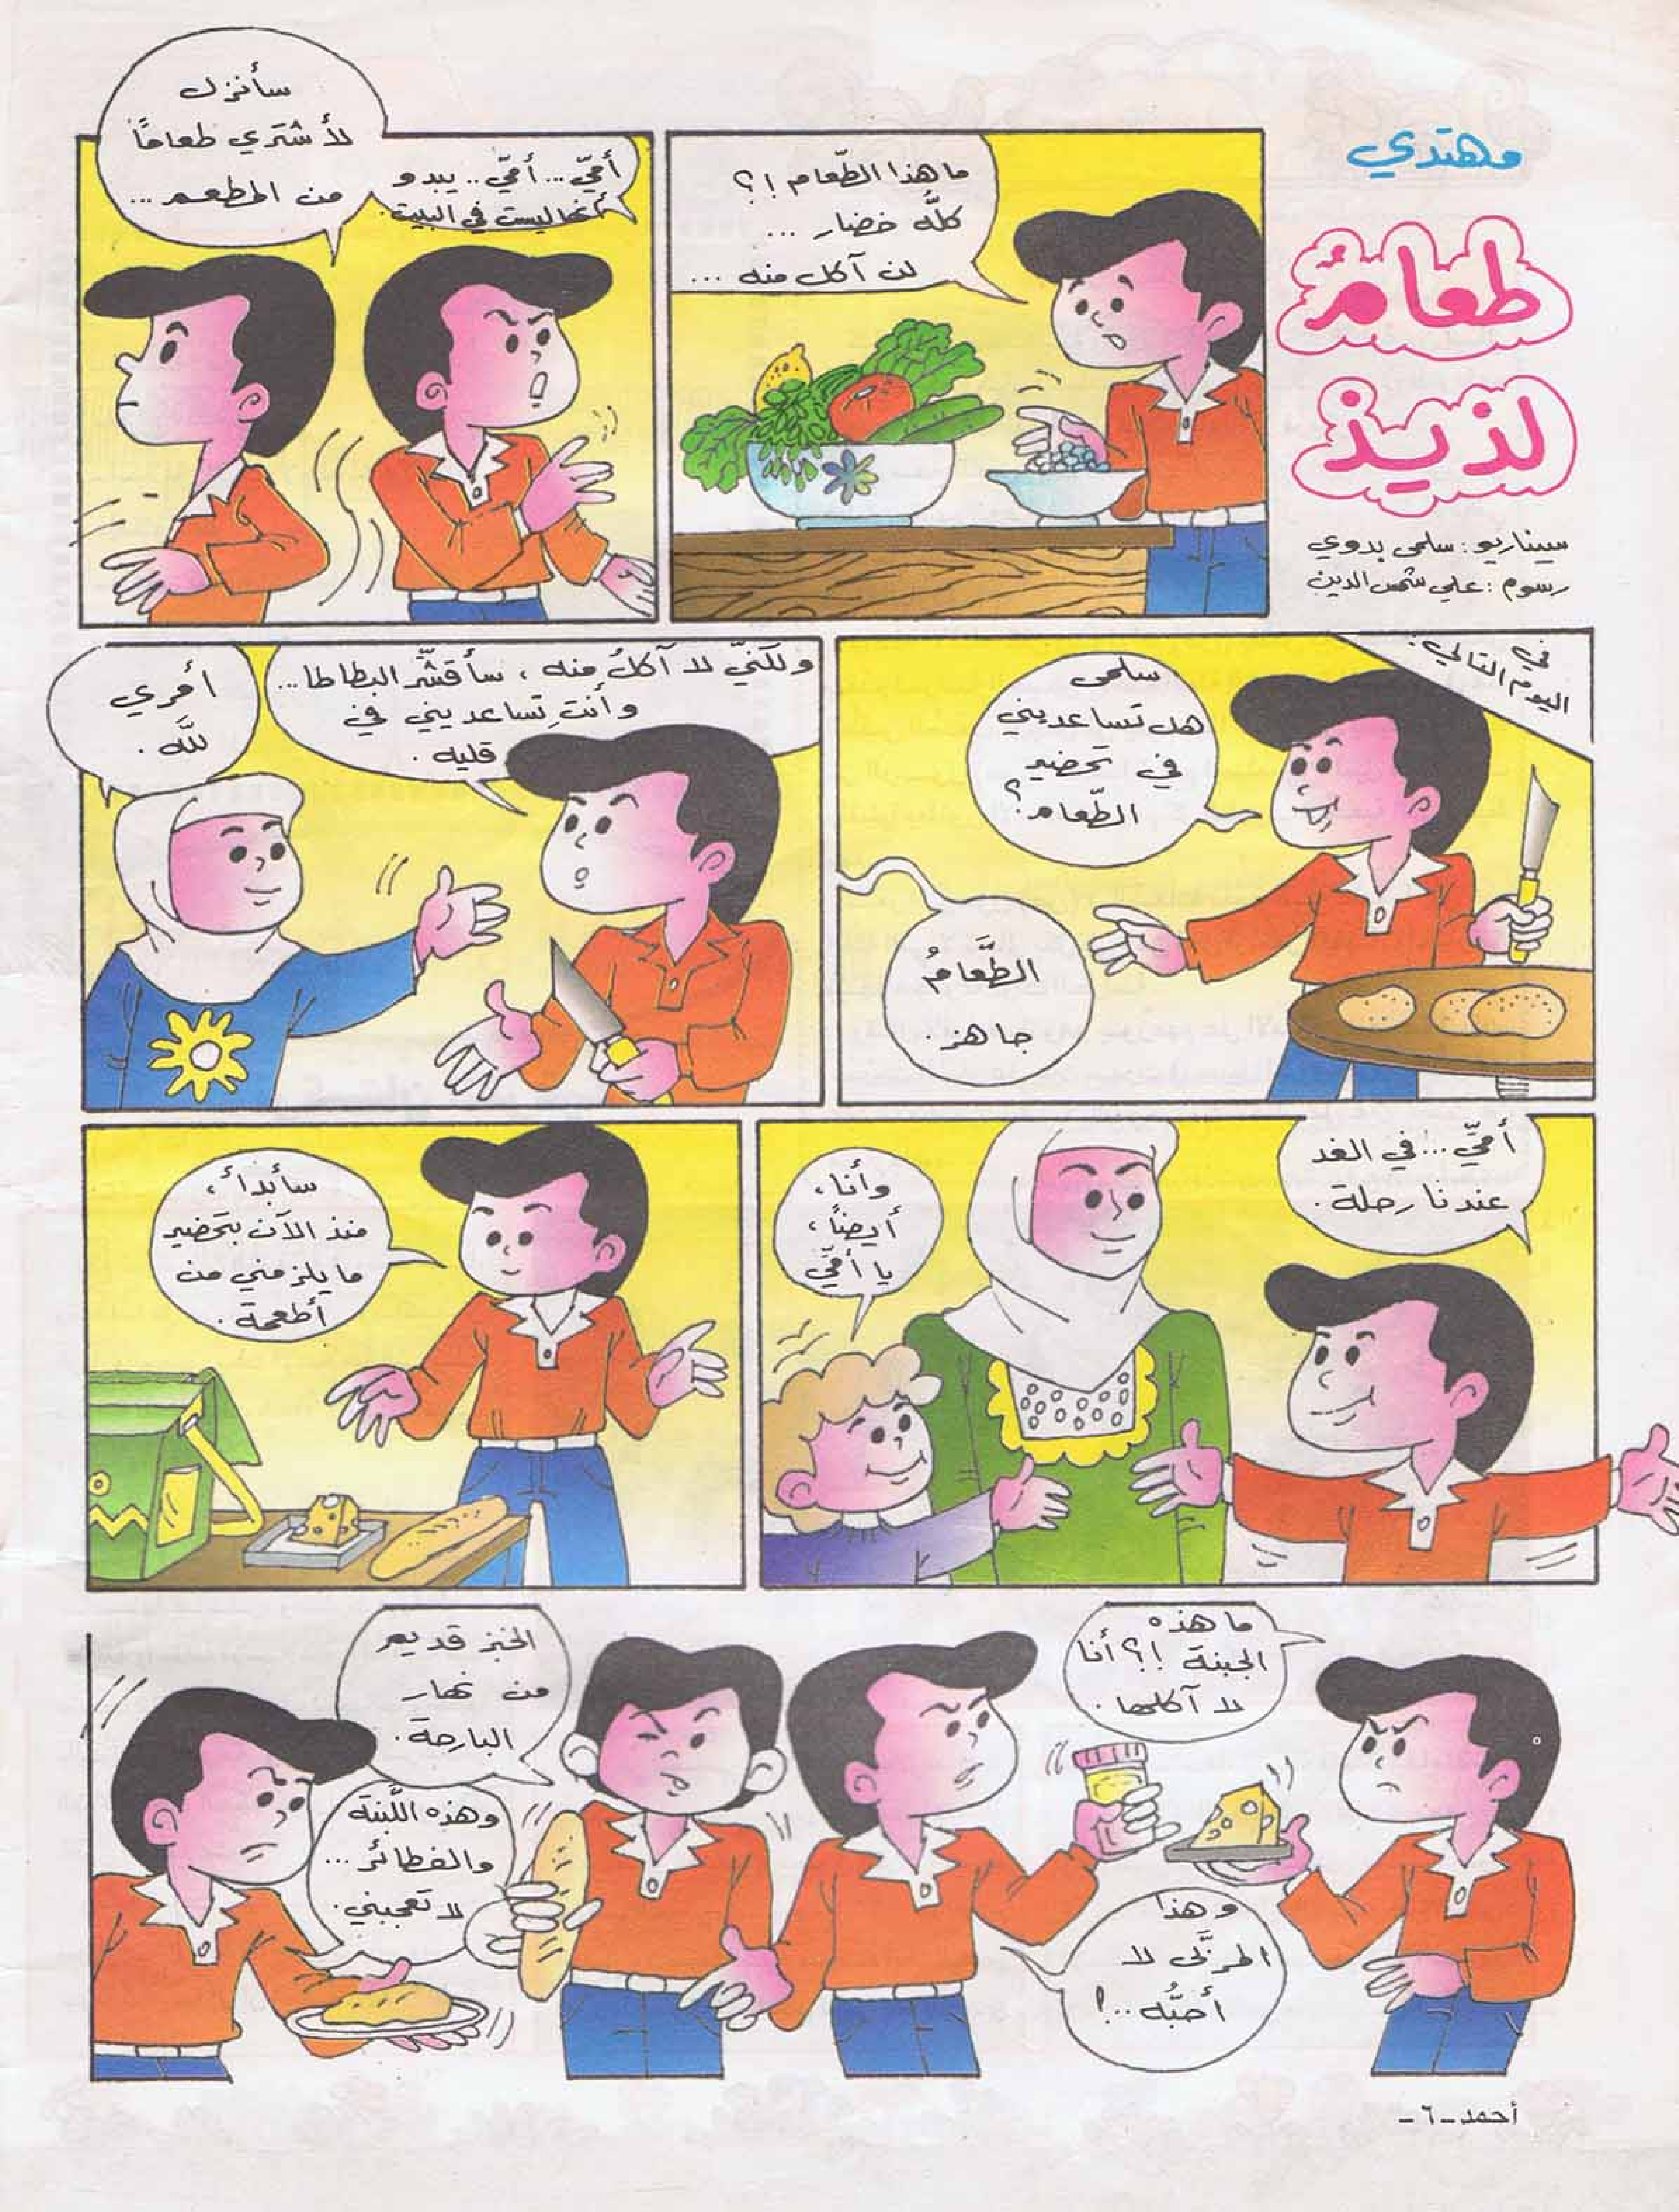 مهتدي
طعامٌ
لذيذ
سيناريو: سلمى بدوي
رسوم: علي شمس الدين
ما هذا الطّعام !؟
كلُّه خضار ...
لن آكل منه ...
أمّي... أمّي.. يبدو
أنها ليست في البيت.
سأنزل
لأشتري طعامًا
من المطعم ...
في
اليوم التالي:
سلمى
هل تساعديني
في تحضير
الطّعام؟
الطَّعامُ
جاهز.
ولكنّي لا آكلُ منه، سأقشّر البطاطا...
وأنتِ تساعديني في
قليه.
أمري
للَّه.
أمّي... في الغد
عندنا رحلة.
وأنا،
أيضًا،
يا أمّي
سأبدأ،
منذ الآن بتحضير
ما يلزمني من
أطعمة.
ما هذه
الجبنة !؟ أنا
لا آكلها.
وهذا
المربَّى لا
أحبُّه ..!
الخبز قديم
من نهار
البارحة.
وهذه اللَّبنة
والفطائر ...
لا تعجبني.
أحمد - ٦ -